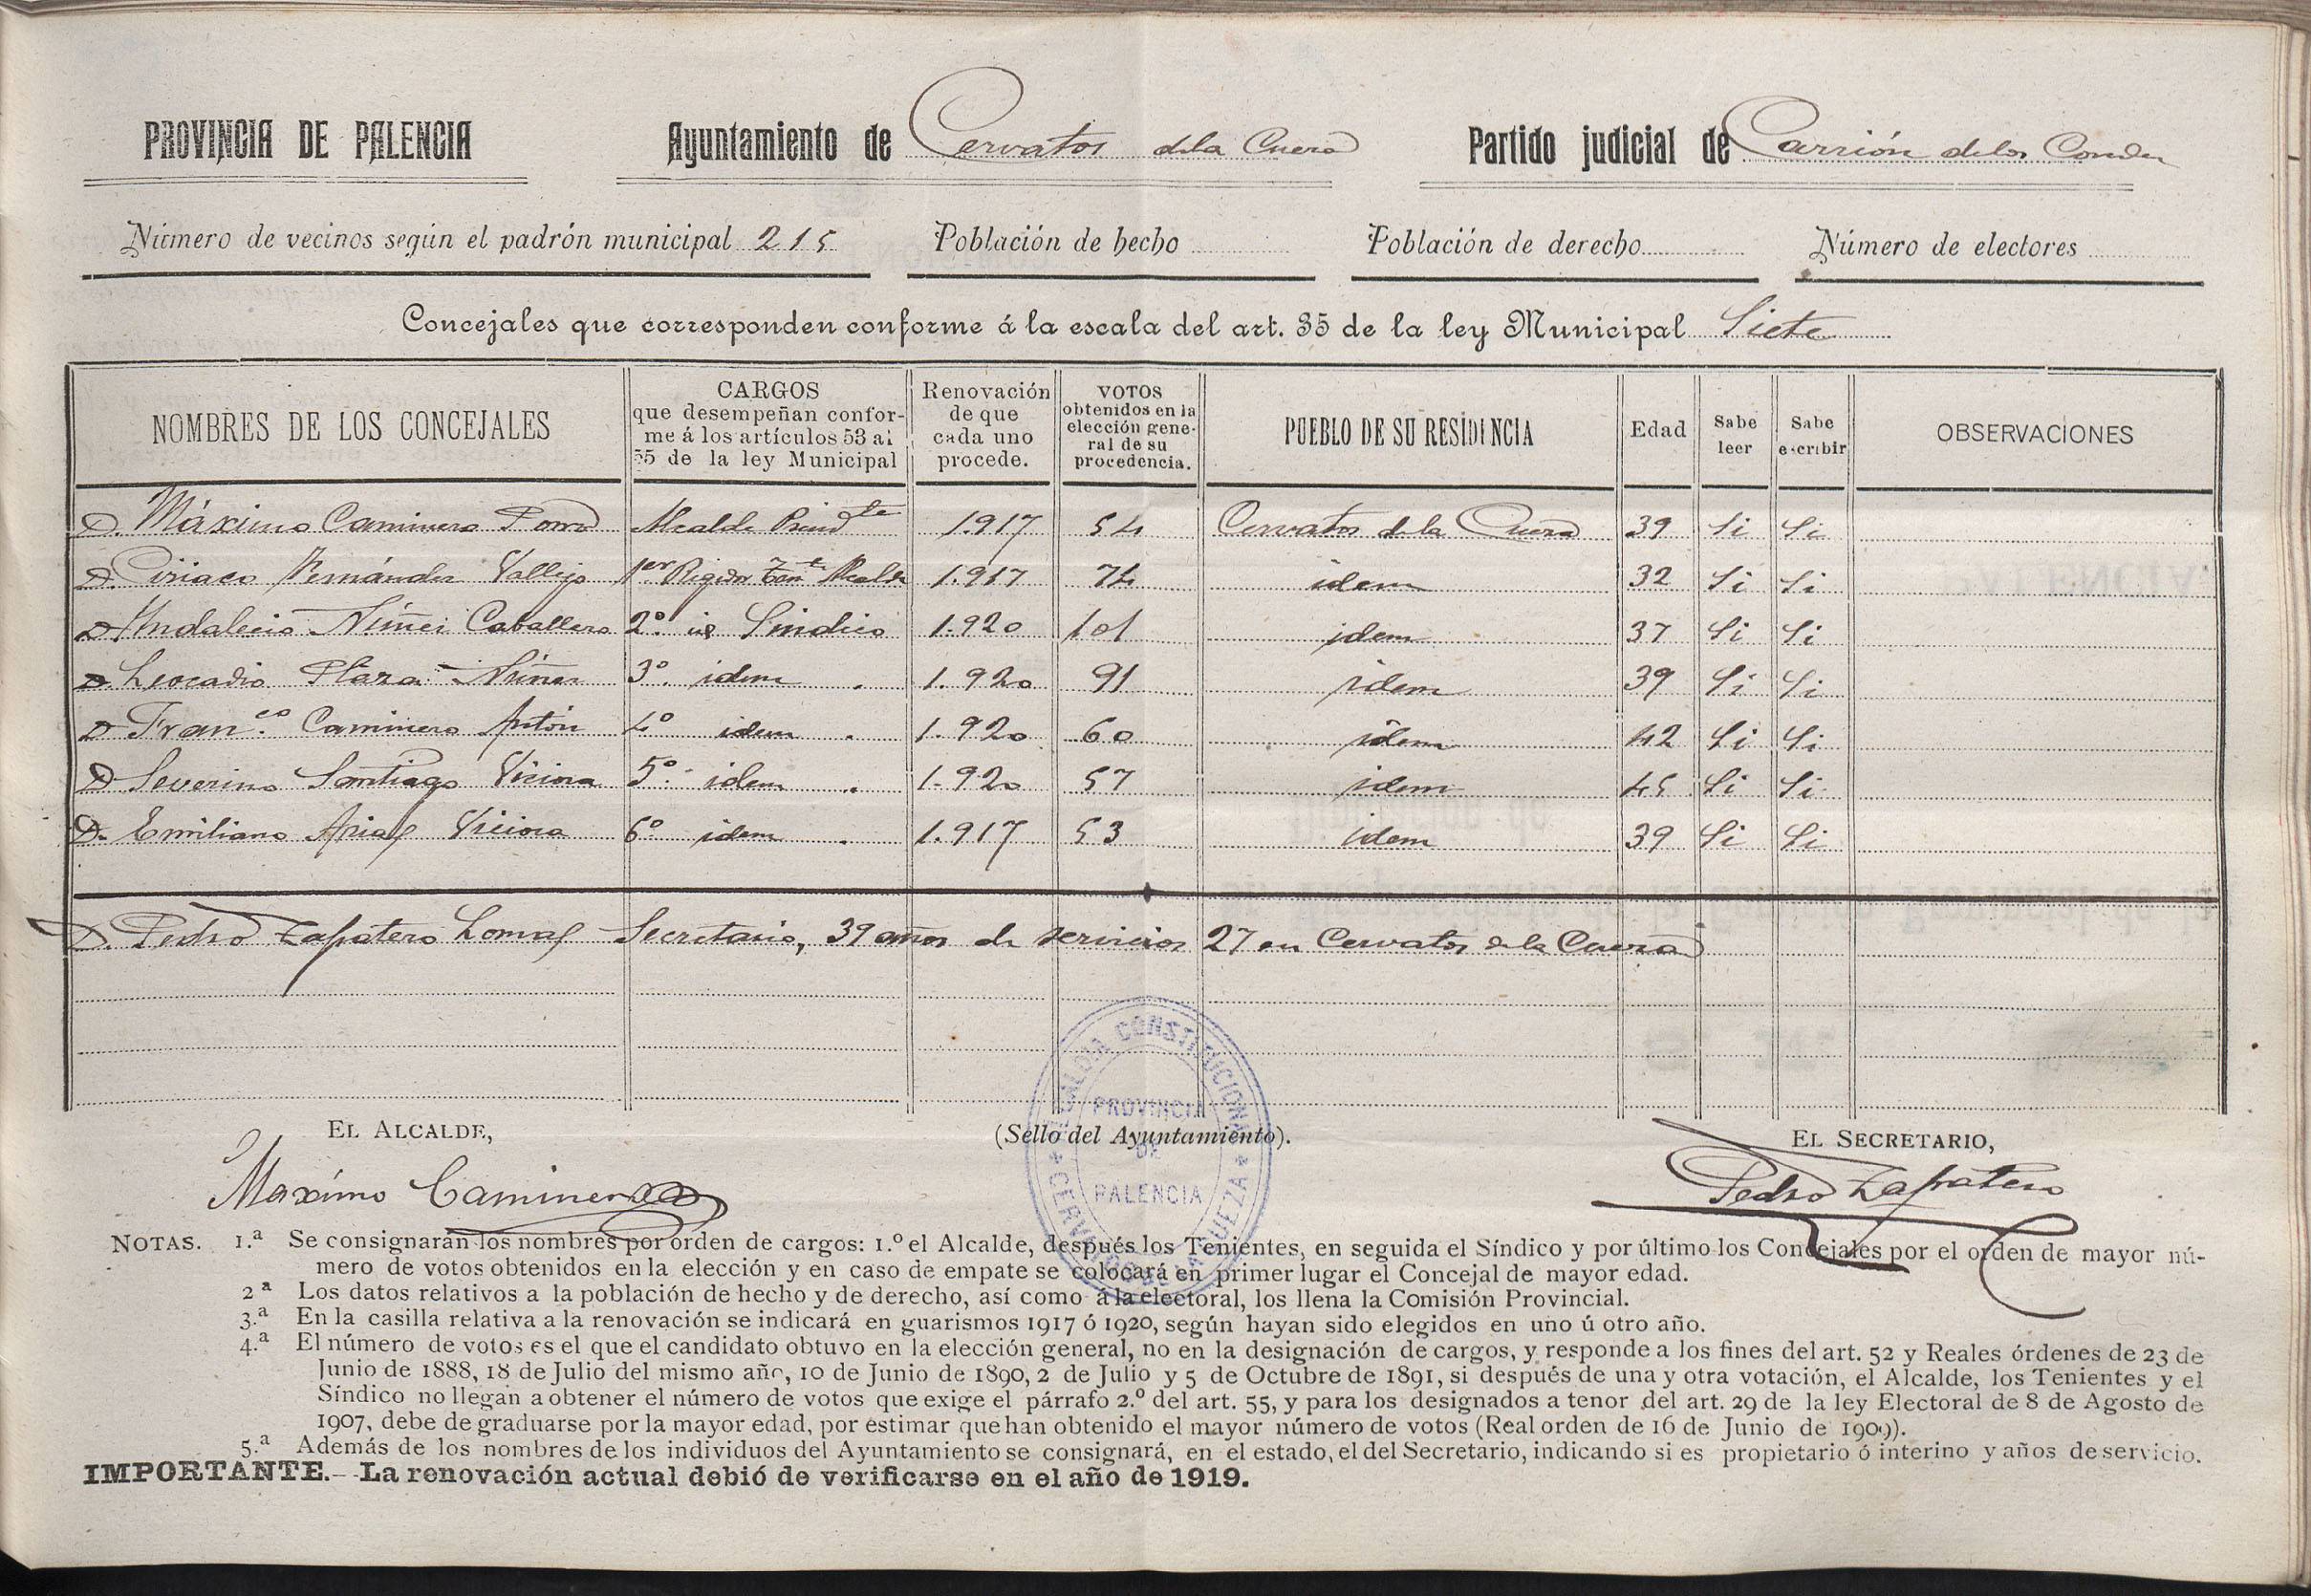 PROVINCIA DE PALENCIA Ayuntamiento de Cervatos de la Cueza Partido judicial de Carrión de los Condes
Número de vecinos según el padrón municipal 215 Población de hecho Población de derecho Número de electores
Concejales que corresponden conforme á la escala del art. 35 de la ley Municipal Siete
NOMBRES DE LOS CONCEJALES
CARGOS
que desempeñan confor-
me á los artículos 53 al
55 de la ley Municipal
Renovación
de que
cada uno
procede.
VOTOS
obtenidos en la
elección gene-
ral de su
procedencia.
PUEBLO DE SU RESIDENCIA
Edad
Sabe
leer
Sabe
escribir
OBSERVACIONES
D. Máximo Caminero Alcalde Presidte 1.917 54 Cervatos de la Cueza 39 Si Si
D. Ciriaco Fernández Vallejo 1er Regidor Tente Alcalde 1.917 74 idem 32 Si Si
D. Indalecio Núñez Caballero 2º id Sindico 1.920 101 idem 37 Si Si
D. Leocadio Plaza Núñez 3º idem 1.920 91 idem 39 Si Si
D. Franco. Caminero Antón 4º idem 1.920 60 idem 42 Si Si
D. Severino Santiago Viciosa 5º idem 1.920 57 idem 45 Si Si
D. Emiliano Arias Viciosa 6º idem 1.917 53 idem 39 Si Si
D. Pedro Zapatero Lomas Secretario, 39 años de servicios 27 en Cervatos de la Cueza
EL ALCALDE, (Sello del Ayuntamiento). EL SECRETARIO,
ALCALDIA CONSTITUCIONAL
PROVINCIA
DE
PALENCIA
Máximo Caminero Pedro Zapatero
NOTAS. 1.ª Se consignarán los nombres por orden de cargos: 1.º el Alcalde, después los Tenientes, en seguida el Síndico y por último los Concejales por el orden de mayor nú-
mero de votos obtenidos en la elección y en caso de empate se colocará en primer lugar el Concejal de mayor edad.
2ª Los datos relativos a la población de hecho y de derecho, así como á la electoral, los llena la Comisión Provincial.
3.ª En la casilla relativa a la renovación se indicará en guarismos 1917 ó 1920, según hayan sido elegidos en uno ú otro año.
4.ª El número de votos es el que el candidato obtuvo en la elección general, no en la designación de cargos, y responde a los fines del art. 52 y Reales órdenes de 23 de
Junio de 1888, 18 de Julio del mismo año, 10 de Junio de 1890, 2 de Julio y 5 de Octubre de 1891, si después de una y otra votación, el Alcalde, los Tenientes y el
Síndico no llegan a obtener el número de votos que exige el párrafo 2.º del art. 55, y para los designados a tenor del art. 29 de la ley Electoral de 8 de Agosto de
1907, debe de graduarse por la mayor edad, por estimar que han obtenido el mayor número de votos (Real orden de 16 de Junio de 1909).
5.ª Además de los nombres de los individuos del Ayuntamiento se consignará, en el estado, el del Secretario, indicando si es propietario ó interino y años de servicio.
IMPORTANTE.- La renovación actual debió de verificarse en el año de 1919.